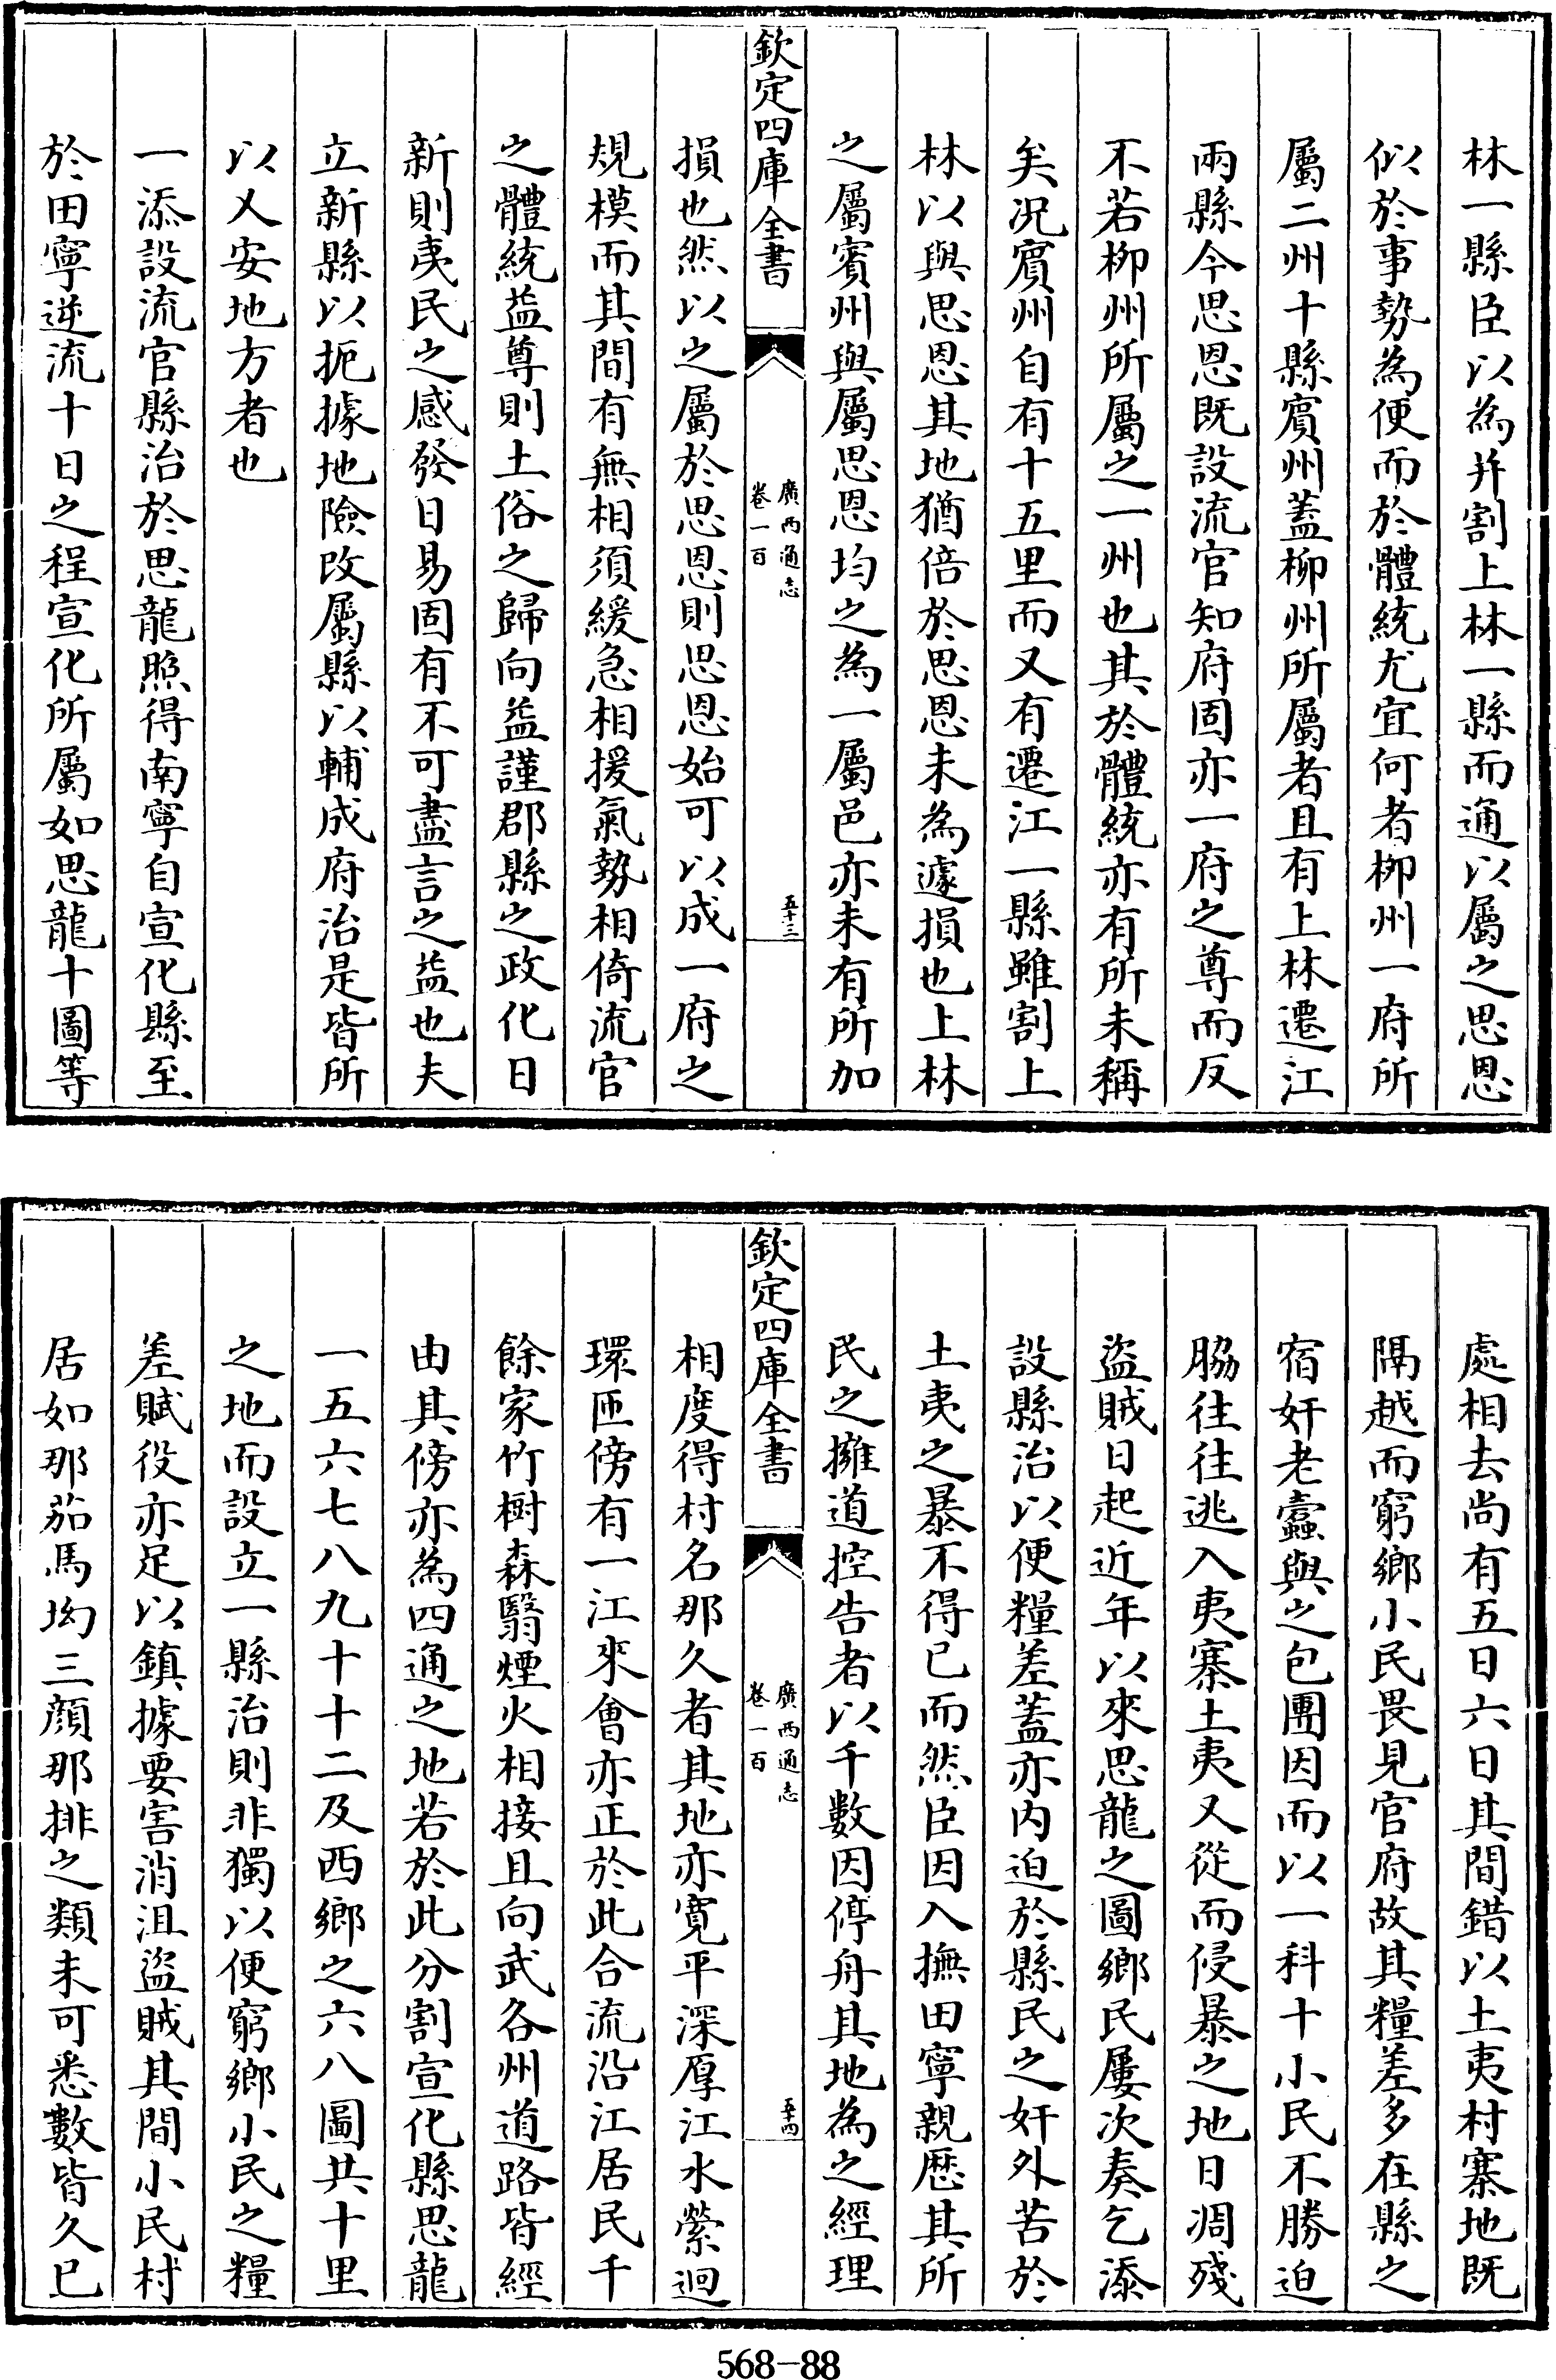 林一縣臣以為并割上林一縣而通以屬之思恩
似於事勢為便而於體統尤宜何者栁州一府所
屬二州十縣賔州蓋栁州所屬者且有上林遷江
兩縣今思恩既設流官知府固亦一府之尊而反
不若栁州所屬之一州也其於體統亦有所未稱
矣况賔州自有十五里而又有遷江一縣雖割上
林以與思恩其地猶倍於思恩未為遽損也上林
之屬賔州與屬思恩均之為一屬邑亦未有所加
欽定四庫全書
廣西通志
卷一百
五十三
損也然以之屬於思恩則思恩始可以成一府之
規模而其間有無相須緩急相援氣勢相倚流官
之體統益尊則土俗之歸向益謹郡縣之政化日
新則夷民之感發日易固有不可盡言之益也夫
立新縣以扼據地險改屬縣以輔成府治是皆所
以乂安地方者也
一添設流官縣治於思龍照得南寧自宣化縣至
於田寧逆流十日之程宣化所屬如思龍十圖等
處相去尚有五日六日其間錯以土夷村寨地既
隔越而窮鄉小民畏見官府故其糧差多在縣之
宿奸老蠧與之包團因而以一科十小民不勝迫
脇往往逃入夷寨土夷又從而侵暴之地日凋殘
盜賊日起近年以來思龍之圖鄉民屢次奏乞添
設縣治以便糧差蓋亦内迫於縣民之奸外苦於
土夷之暴不得已而然臣因入撫田寧親歴其所
民之擁道控告者以千數因停舟其地為之經理
欽定四庫全書
廣西通志
卷一百
五十四
相度得村名那久者其地亦寛平深厚江水縈迴
環匝傍有一江來會亦正於此合流沿江居民千
餘家竹樹森翳煙火相接且向武各州道路皆經
由其傍亦為四通之地若於此分割宣化縣思龍
一五六七八九十十二及西鄉之六八圖共十里
之地而設立一縣治則非獨以便窮鄉小民之糧
差賦役亦足以鎮據要害消沮盜賊其間小民村
居如那茄馬坳三顏那排之類未可悉數皆久已
568-88